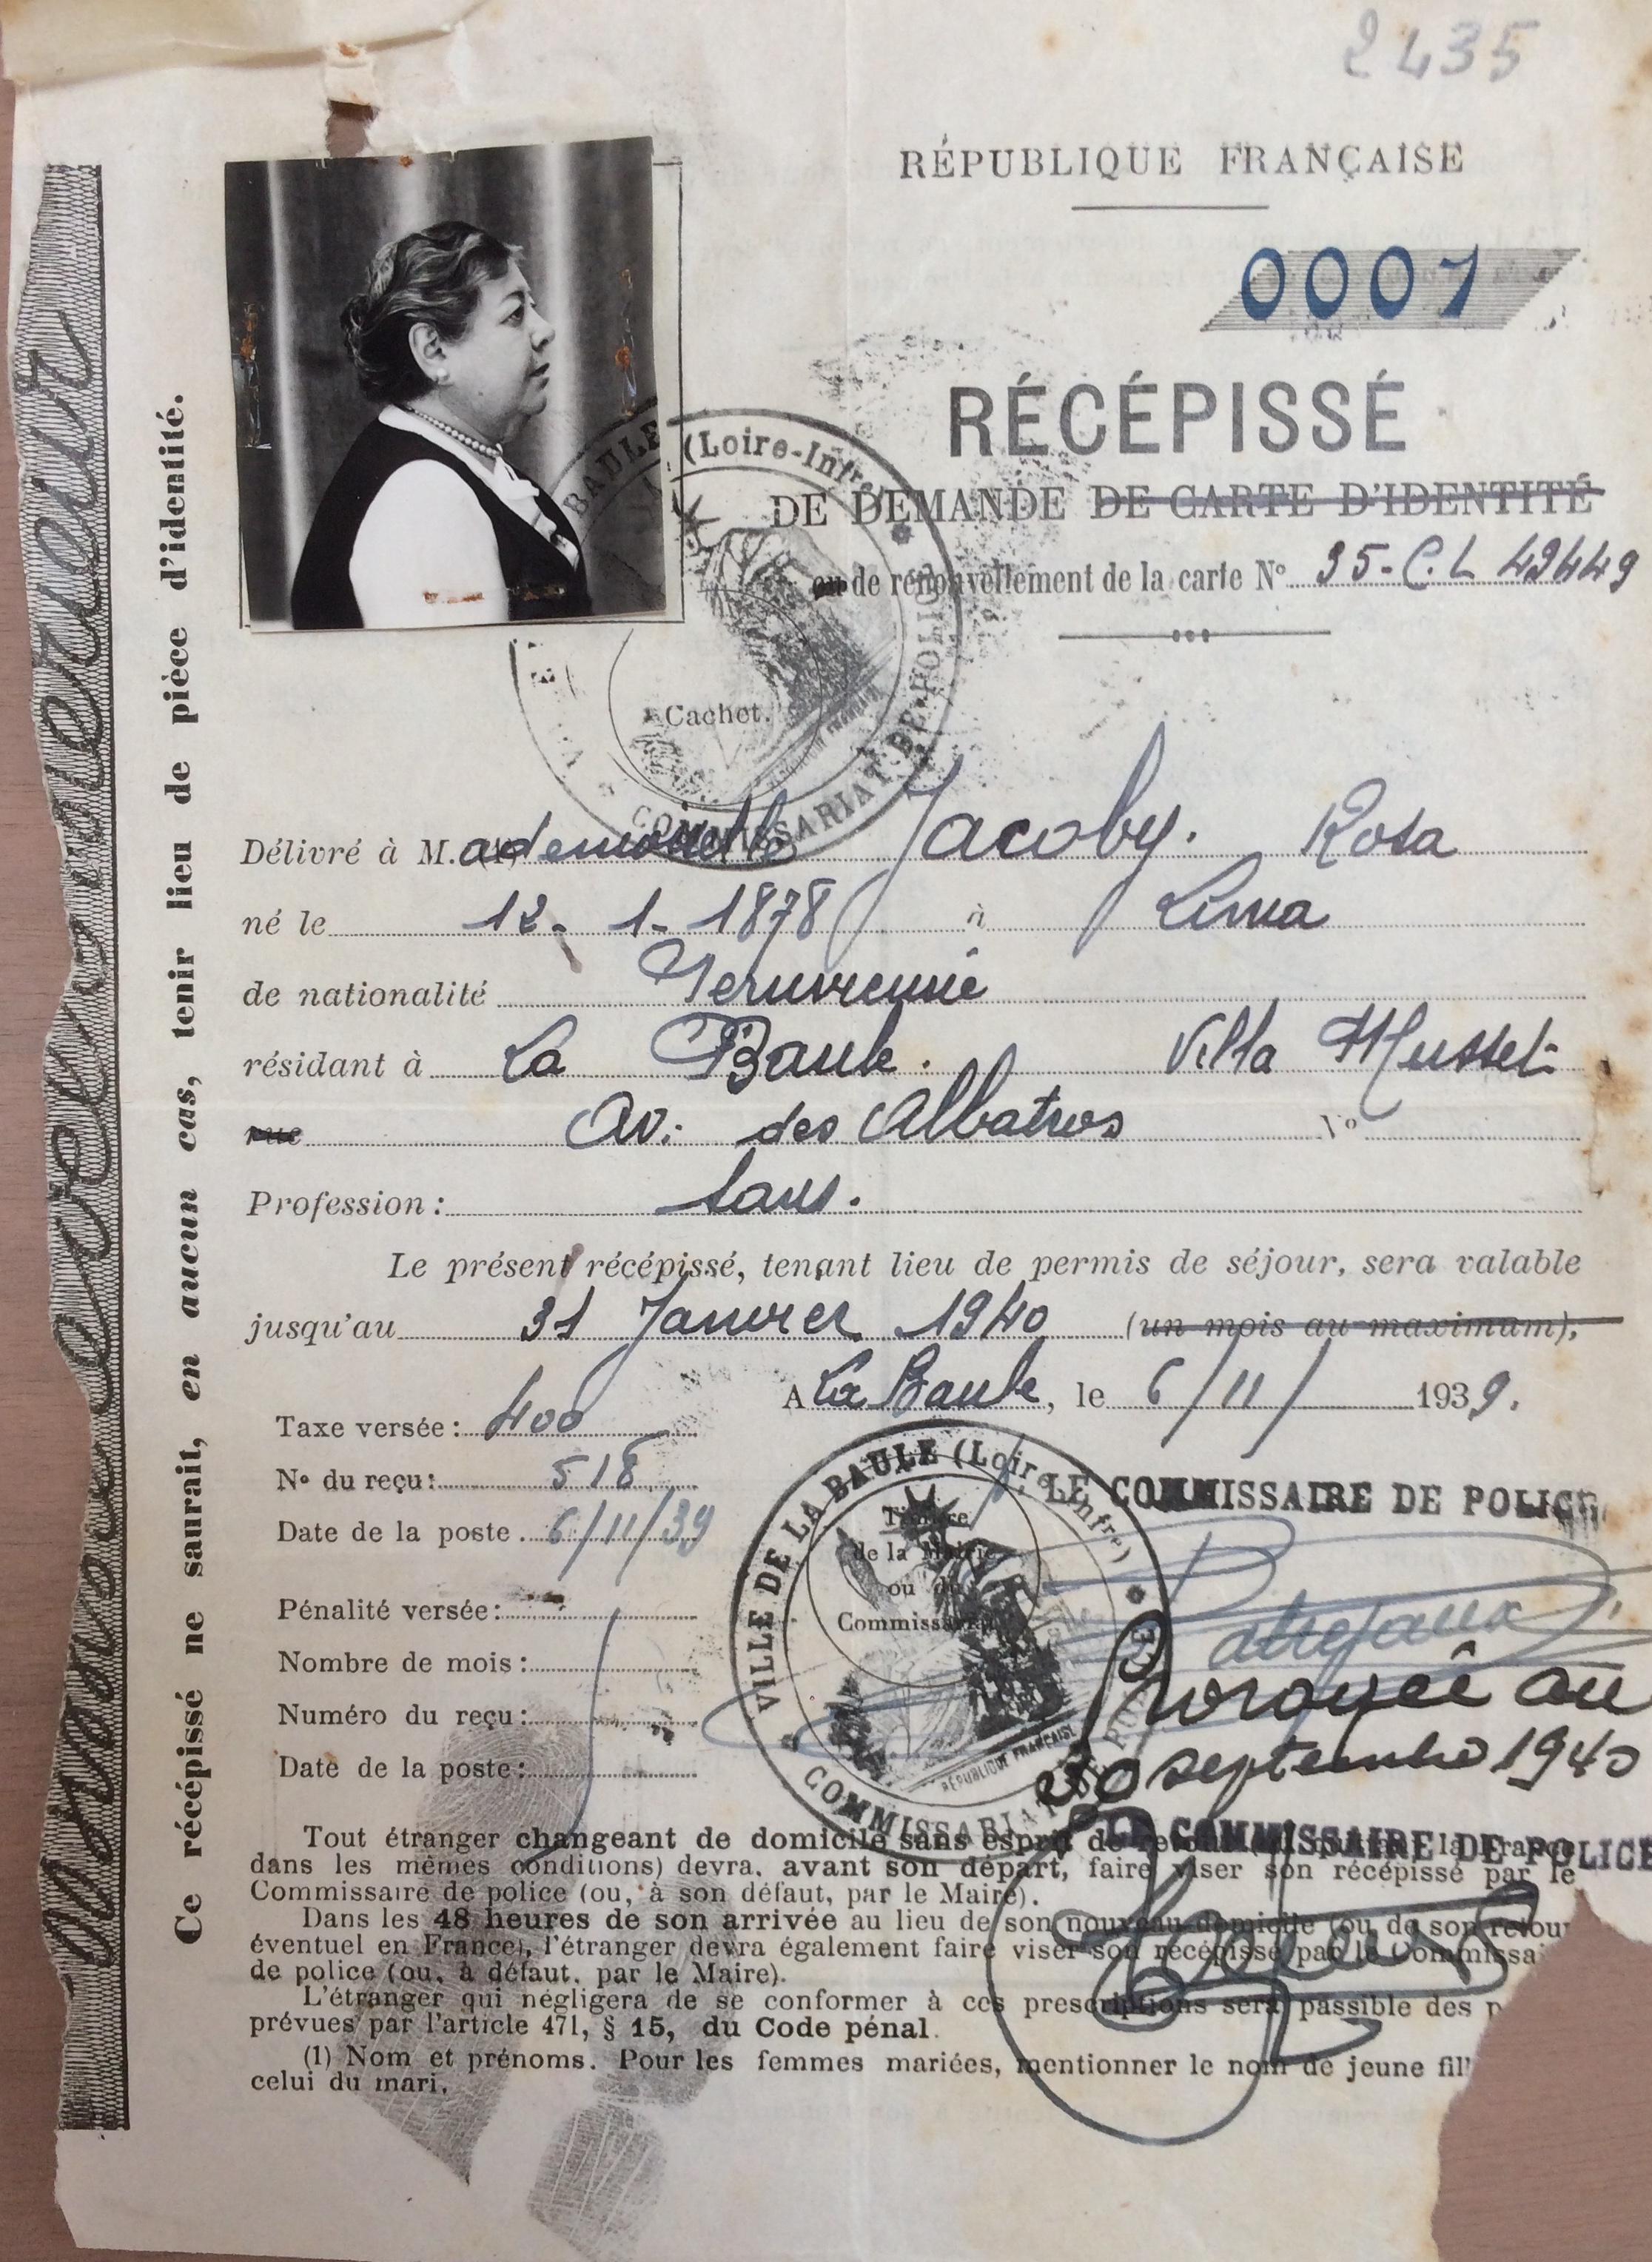 2435
RÉPUBLIQUE FRANÇAISE
0001
RÉCÉPISSÉ
DE DEMANDE DE CARTE D'IDENTITÉ
ou de renouvellement de la carte N° 35-C.L 49449
BAULE (Loire-Infre)
COMMISSARIAT DE POLICE
Cachet.
Délivré à M.(1)ademoiselle Jacoby. Rosa
né le 12-1-1878 à Lima
de nationalité Peruvienne
résidant à La Baule. Villa Musset
rue Av. des Albatros N°
Profession: Sans.
Le présent récépissé, tenant lieu de permis de séjour, sera valable
jusqu'au 31 Janvier 1940 (un mois au maximum),
A La Baule, le 6/11/ 1939.
Taxe versée: 400
N° du reçu: 518
Date de la poste 6/11/39
Pénalité versée:
Nombre de mois:
Numéro du reçu:
Date de la poste:
LE COMMISSAIRE DE POLICE
VILLE DE LA BAULE (Loire-Infre)
COMMISSARIAT DE POLICE
RÉPUBLIQUE FRANÇAISE
Timbre
de la Mairie
ou du
Commissariat
Prorogée au
30 septembre 1940
LE COMMISSAIRE DE POLICE
Tout étranger changeant de domicile sans esprit de retour la France
dans les mêmes conditions) devra, avant son départ, faire viser son récépissé par le
Commissaire de police (ou, à son défaut, par le Maire).
Dans les 48 heures de son arrivée au lieu de son nouveau domicile (ou de son retour
éventuel en France), l'étranger devra également faire viser son récépissé par le Commissai
de police (ou, à défaut, par le Maire).
L'étranger qui négligera de se conformer à ces prescriptions sera passible des p
prévues par l'article 471, § 15, du Code pénal.
(1) Nom et prénoms. Pour les femmes mariées, mentionner le nom de jeune fill
celui du mari.
Ce récépissé ne saurait, en aucun cas, tenir lieu de pièce d'identité.